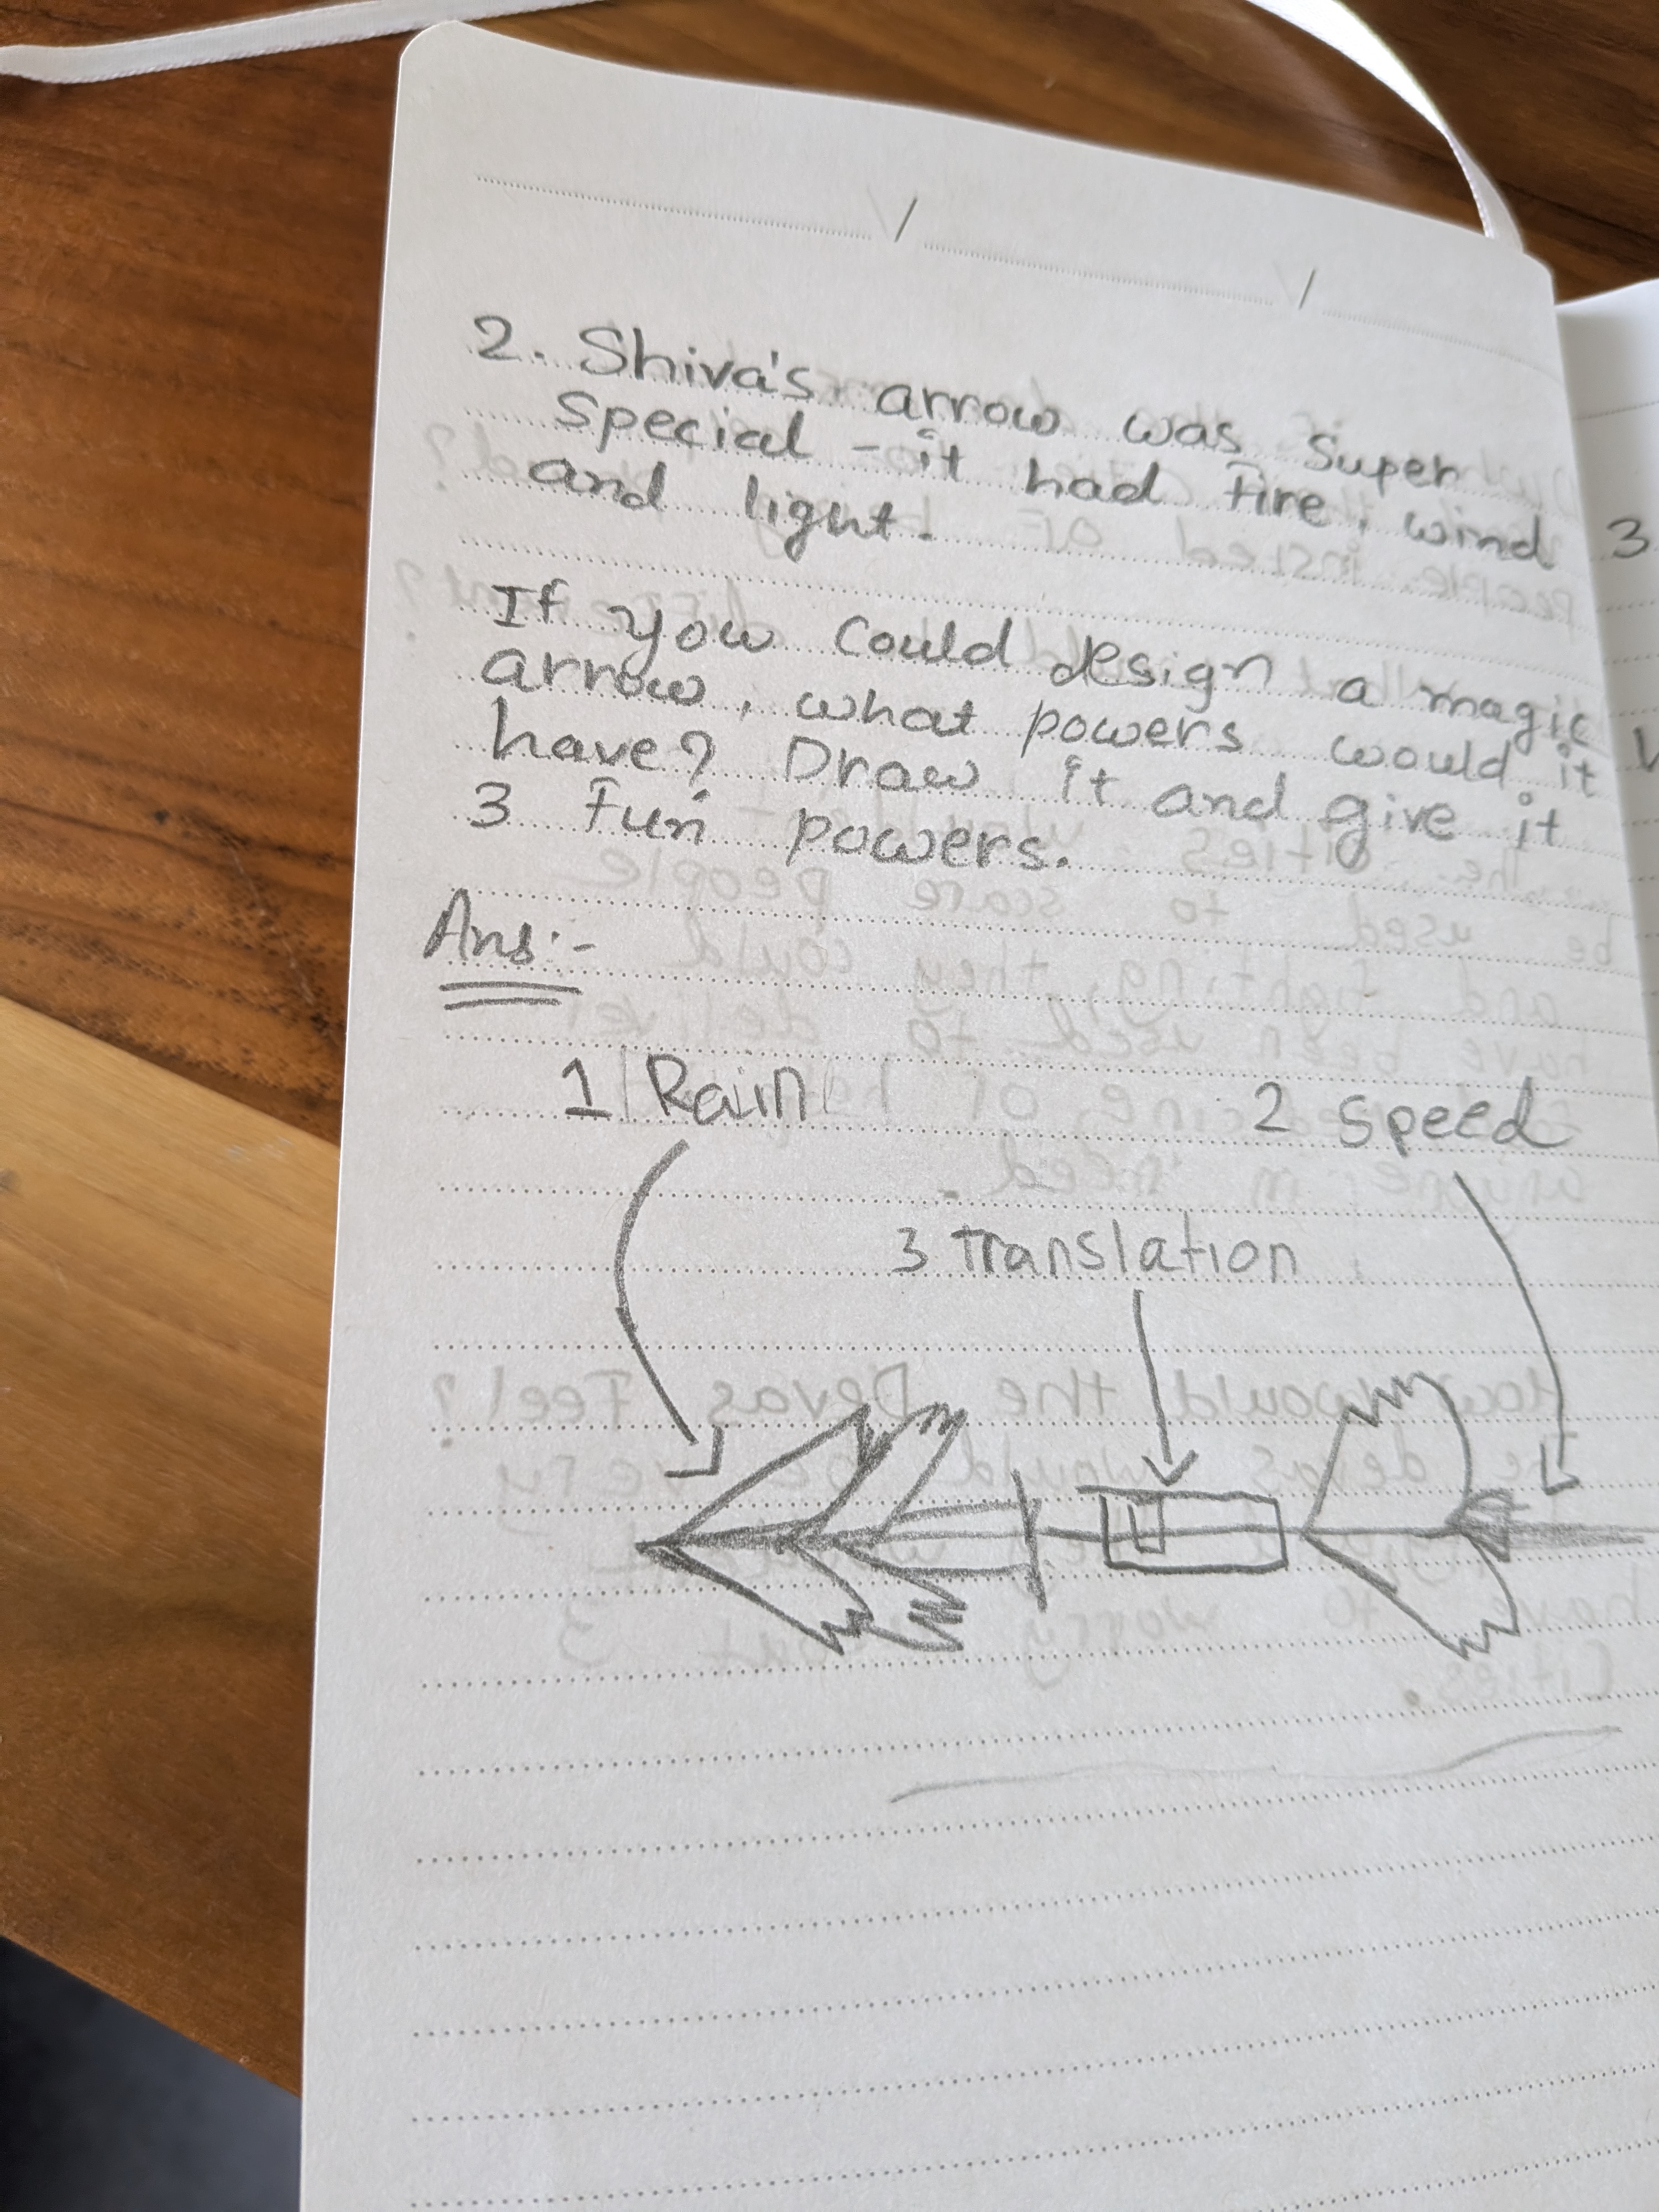 2. Shiva's arrow was super
special - it had fire, wind
and light.
If you could design a magic
arrow, what powers would it
have? Draw it and give it
3 fun powers.
Ans:-
1 Rain
2 speed
3 translation
3